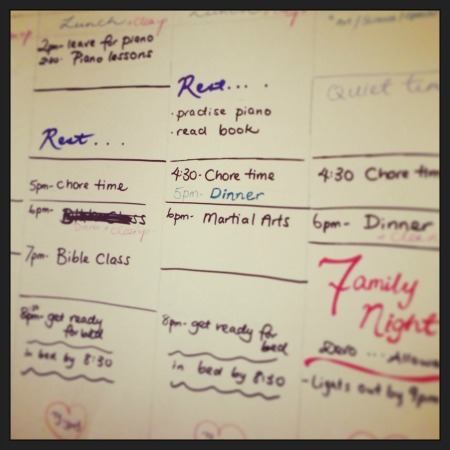 Lunch
2pm- leave for piano
Piano lessons
Rest...
5pm- Chore time
6pm-
7pm- Bible Class
8pm- get ready
for bed
in bed by 8:30
Rest...
· practise piano
· read book
4:30- Chore time
5pm- Dinner
6pm- Martial Arts
8pm- get ready for
bed
in bed by 8:30
Quiet
4:30 Chore
6pm- Dinner
Family
Night
- Lights out by 9pm